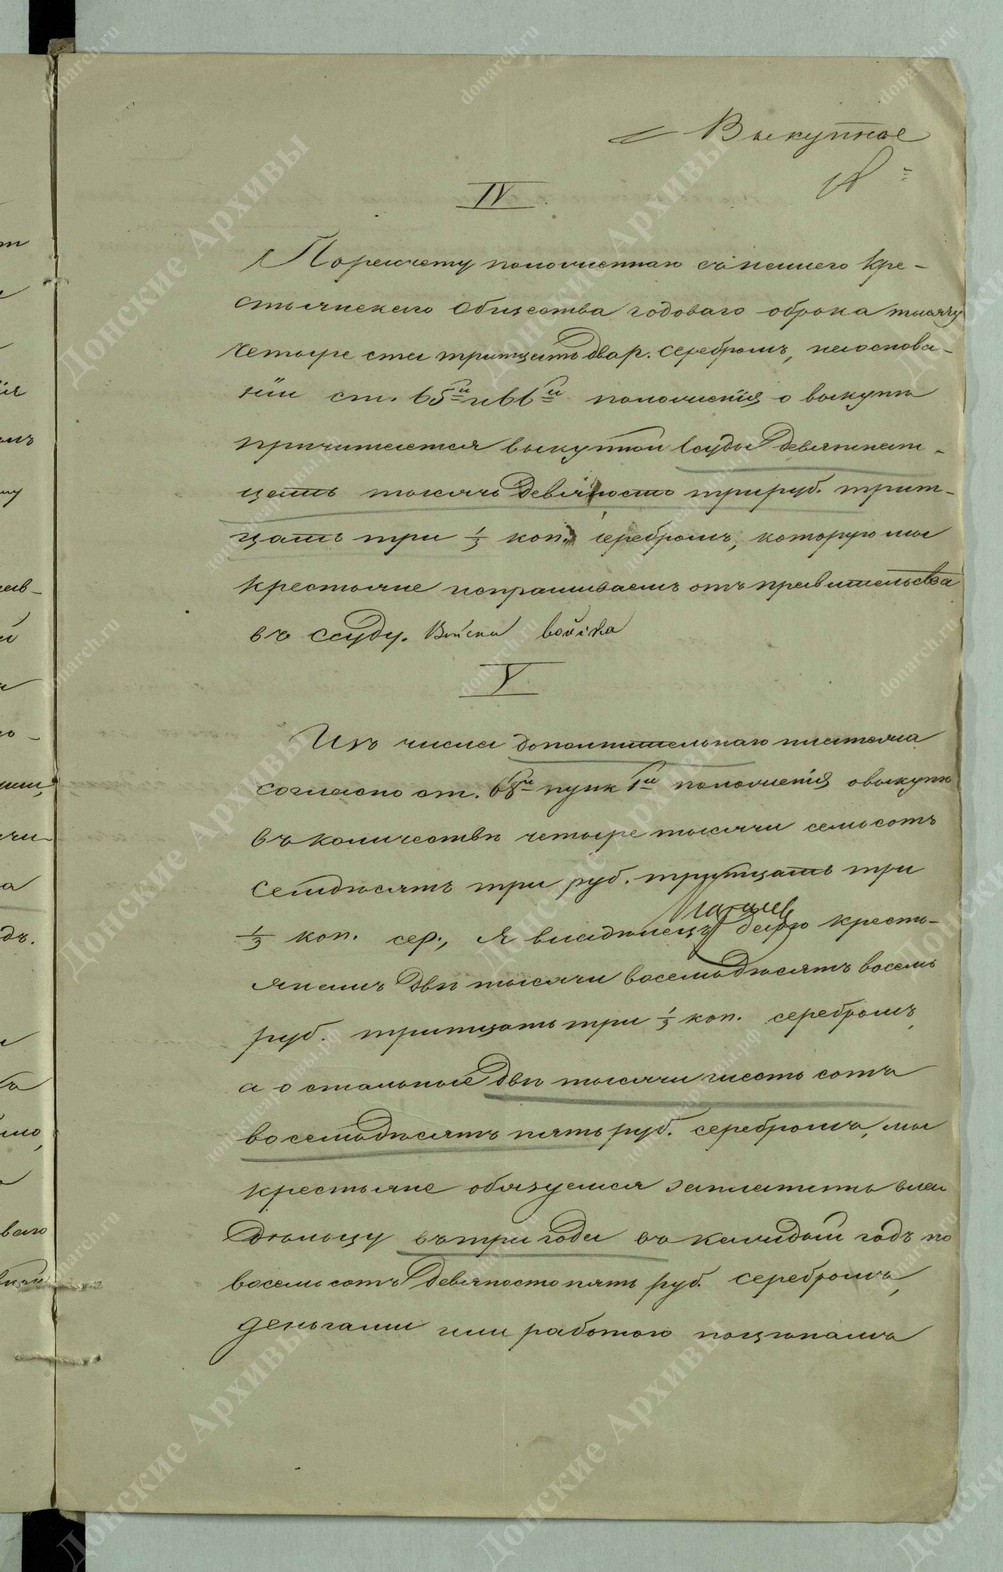 Выкупное
IV
По расчету положеннаго съ нашего кре-
стьянскаго Общества годоваго оброка тысячу
четыре ста тритцать два р. серебромъ, на основа-
нiи ст. 65й и 66й положенiя о выкупѣ
причитается выкупной ссуды девятнат-
цать тысячъ девяносто три руб. трит-
цать три 1/3 коп. серебромъ, которую мы
крестьяне испрашиваемъ отъ правительства
въ ссуду.
V
Изъ числа дополнительнаго платежа
согласно ст. 68й пунк 1й положенiя о выкупѣ
въ количествѣ четыре тысячи семьсотъ
семдѣсятъ три руб. тритцать три
1/3 коп. сер., я владѣлецъ дарю кресть-
янамъ двѣ тысячи восемьдѣсятъ восемь
руб. тритцать три 1/3 коп. серебромъ,
а остальные двѣ тысячи шесть сотъ
восемьдѣсятъ пять руб. серебромъ, мы
крестьяне обязуемся заплатить вла-
дѣльцу въ три года въ каждый годъ по
восемьсотъ девяносто пять руб. серебромъ,
деньгами или работою по цѣнамъ
Донские Архивы
donarch.ru
донскиеархивы.рф